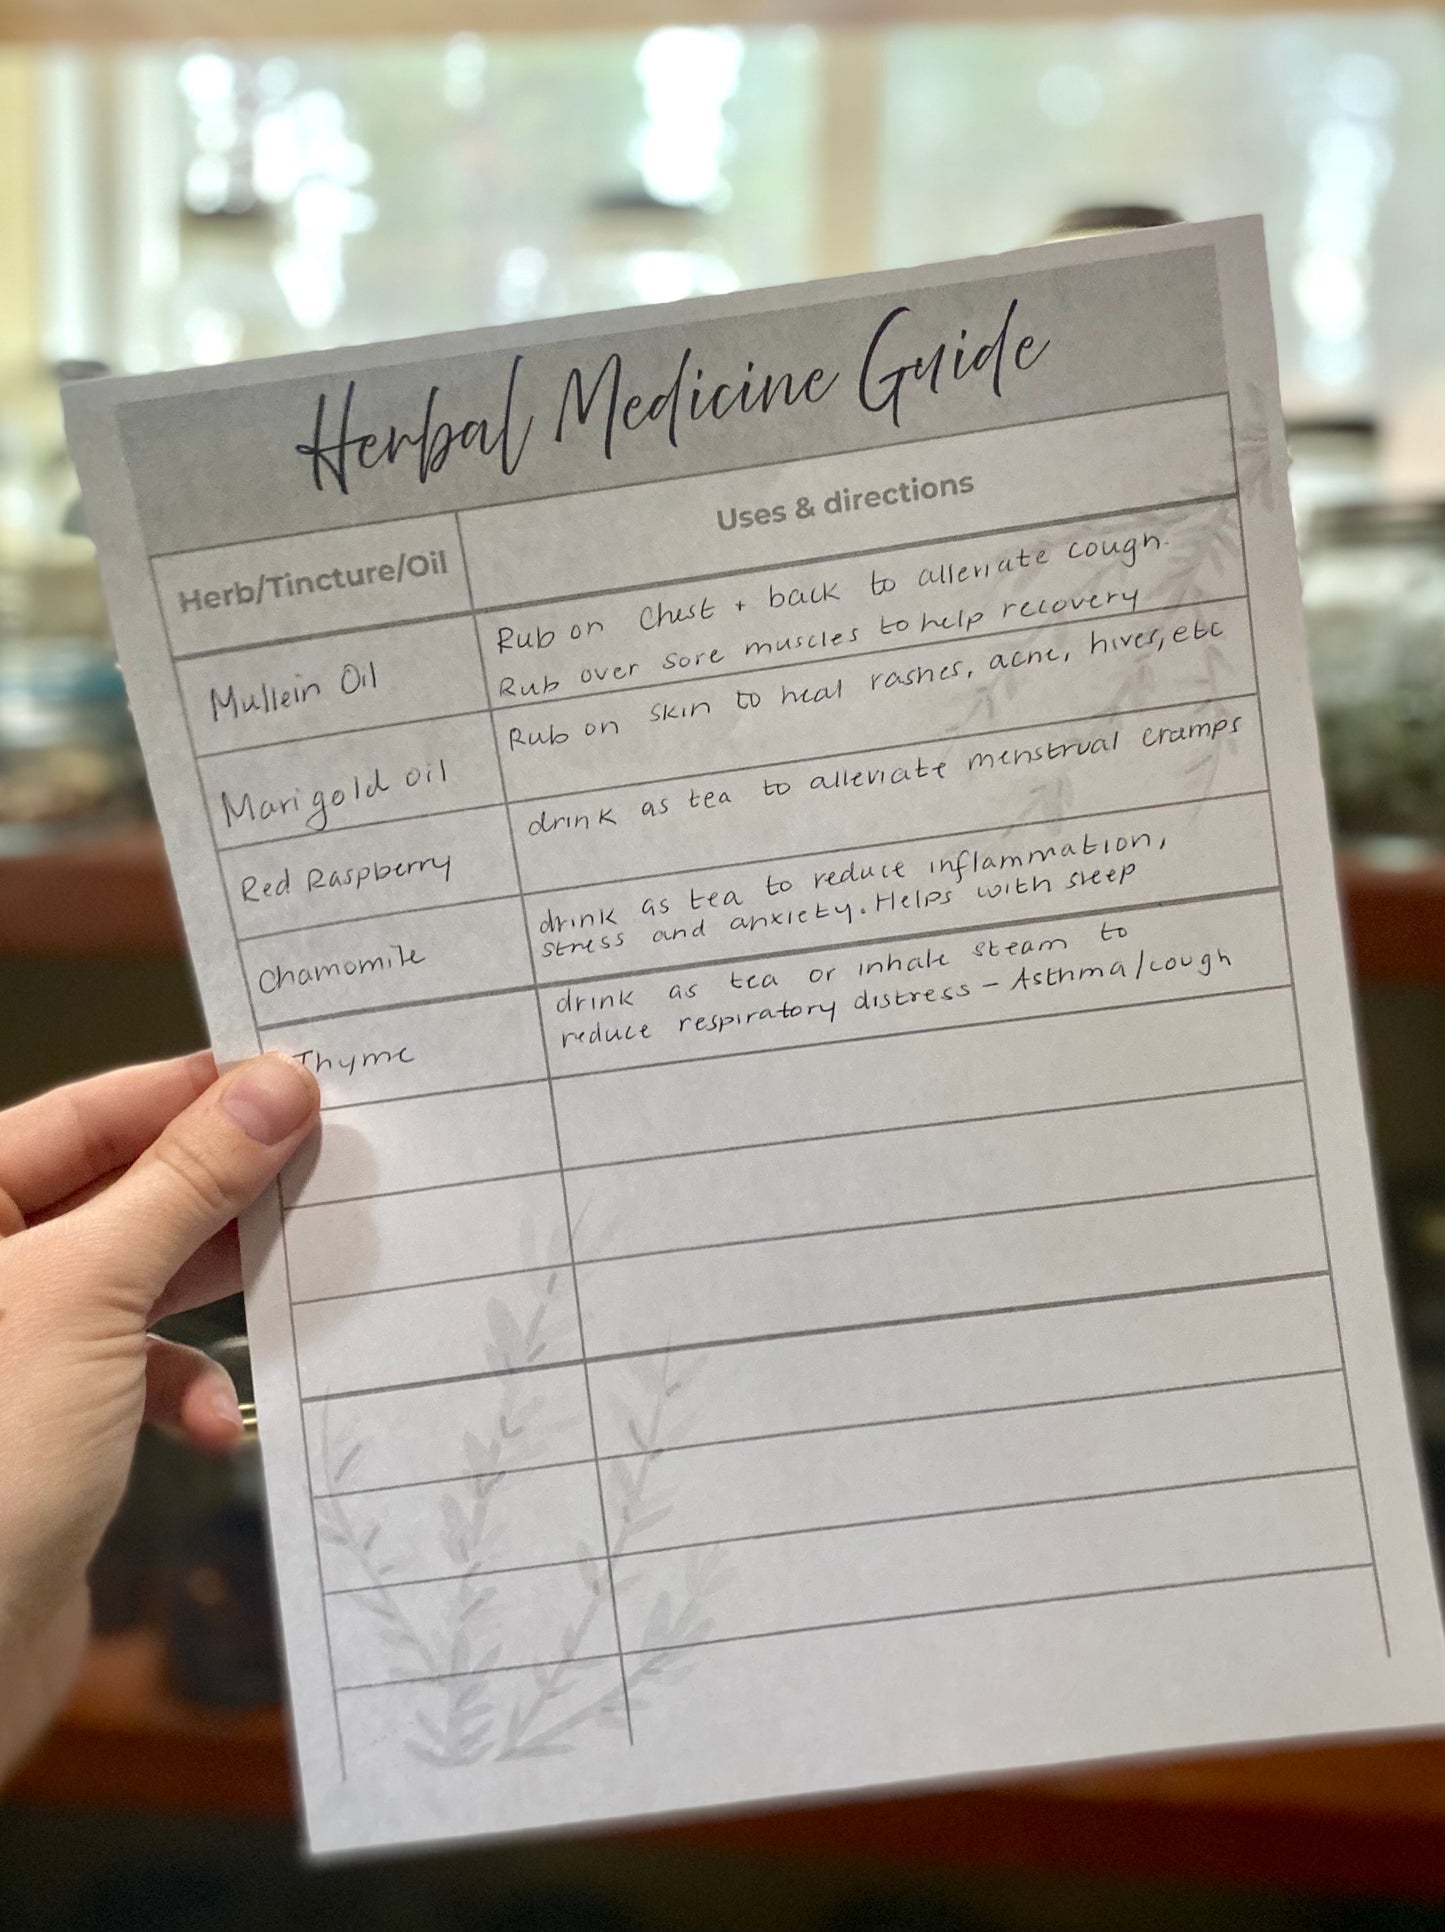 Herbal Medicine Guide
Herb/Tincture/Oil
Uses & directions
Mullein Oil
Rub on chest + back to alleviate cough.
Rub over sore muscles to help recovery
Marigold oil
Rub on skin to heal rashes, acne, hives, etc
Red Raspberry
drink as tea to alleviate menstrual cramps
Chamomile
drink as tea to reduce inflammation,
stress and anxiety. Helps with sleep
Thyme
drink as tea or inhale steam to
reduce respiratory distress - Asthma/cough